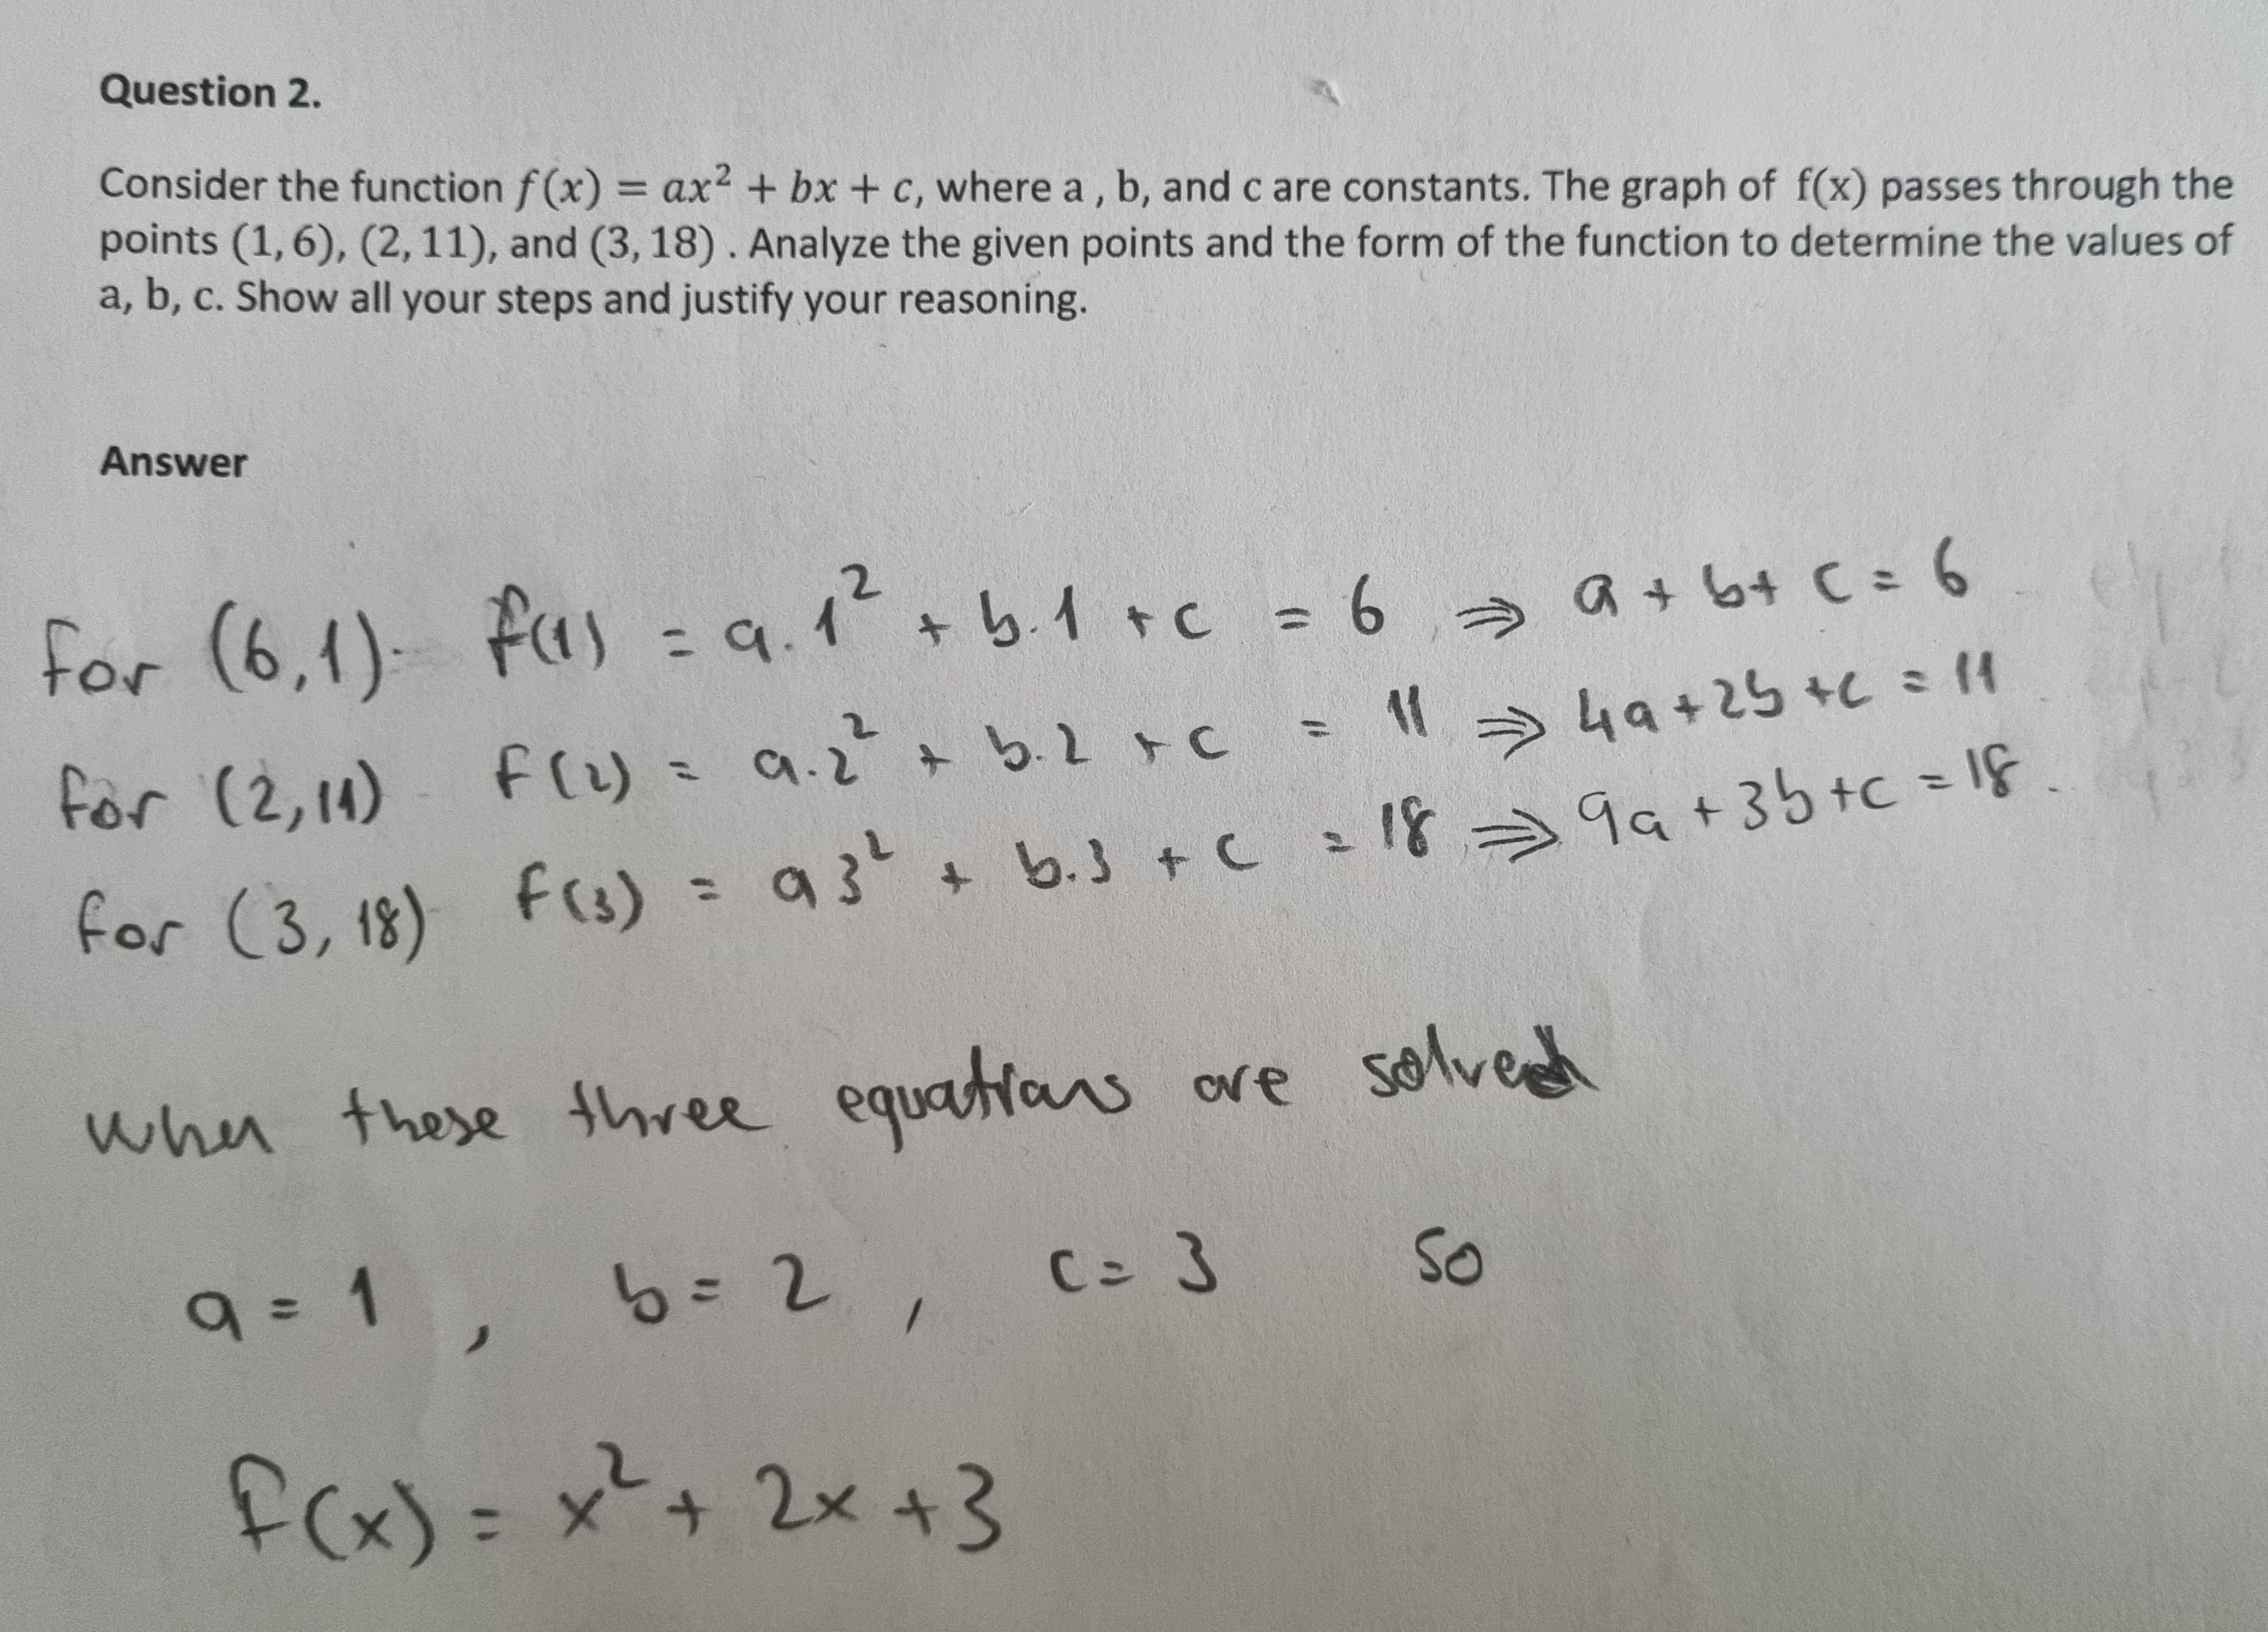 Question 2.
Consider the function f(x) = ax² + bx + c, where a , b, and c are constants. The graph of f(x) passes through the
points (1, 6), (2, 11), and (3, 18) . Analyze the given points and the form of the function to determine the values of
a, b, c. Show all your steps and justify your reasoning.
Answer
for (6,1) f(1) = a.1² + b.1 + c = 6 ⇒ a + b + c = 6
for (2,11) f(2) = a.2² + b.2 + c = 11 ⇒ 4a + 2b + c = 11
for (3, 18) f(3) = a 3² + b.3 + c = 18 ⇒ 9a + 3b + c = 18.
When these three equations are solved
a = 1 , b = 2 , c = 3 so
f(x) = x² + 2x + 3